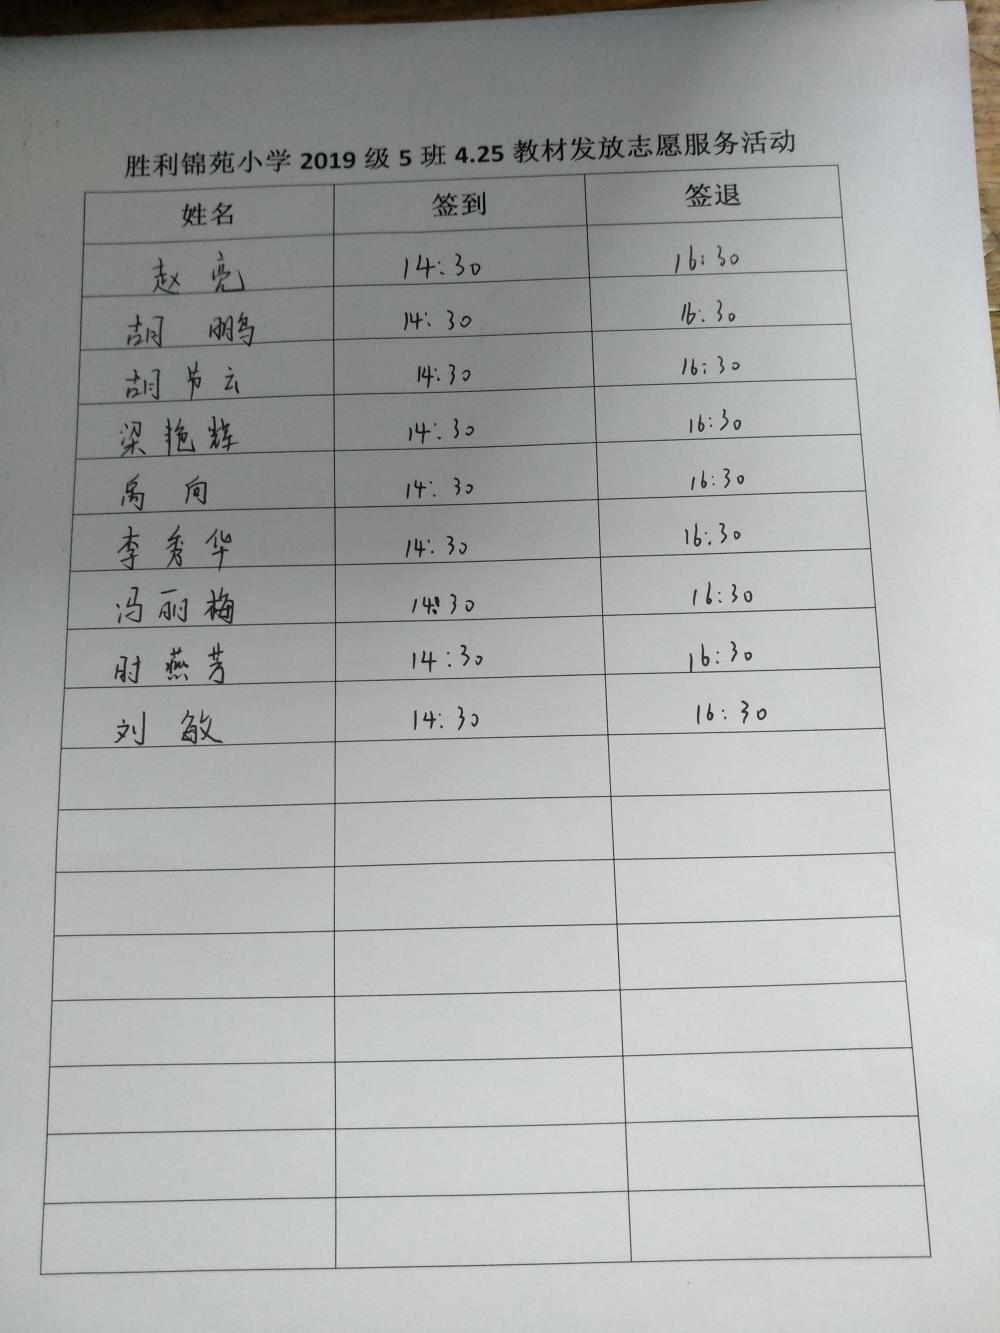 胜利锦苑小学 2019 级 5 班 4.25 教材发放志愿服务活动
姓名 签到 签退
赵亮 14:30 16:30
胡鹏 14:30 16:30
胡节云 14:30 16:30
梁艳辉 14:30 16:30
禹向 14:30 16:30
李秀华 14:30 16:30
冯丽梅 14:30 16:30
时燕芳 14:30 16:30
刘敏 14:30 16:30